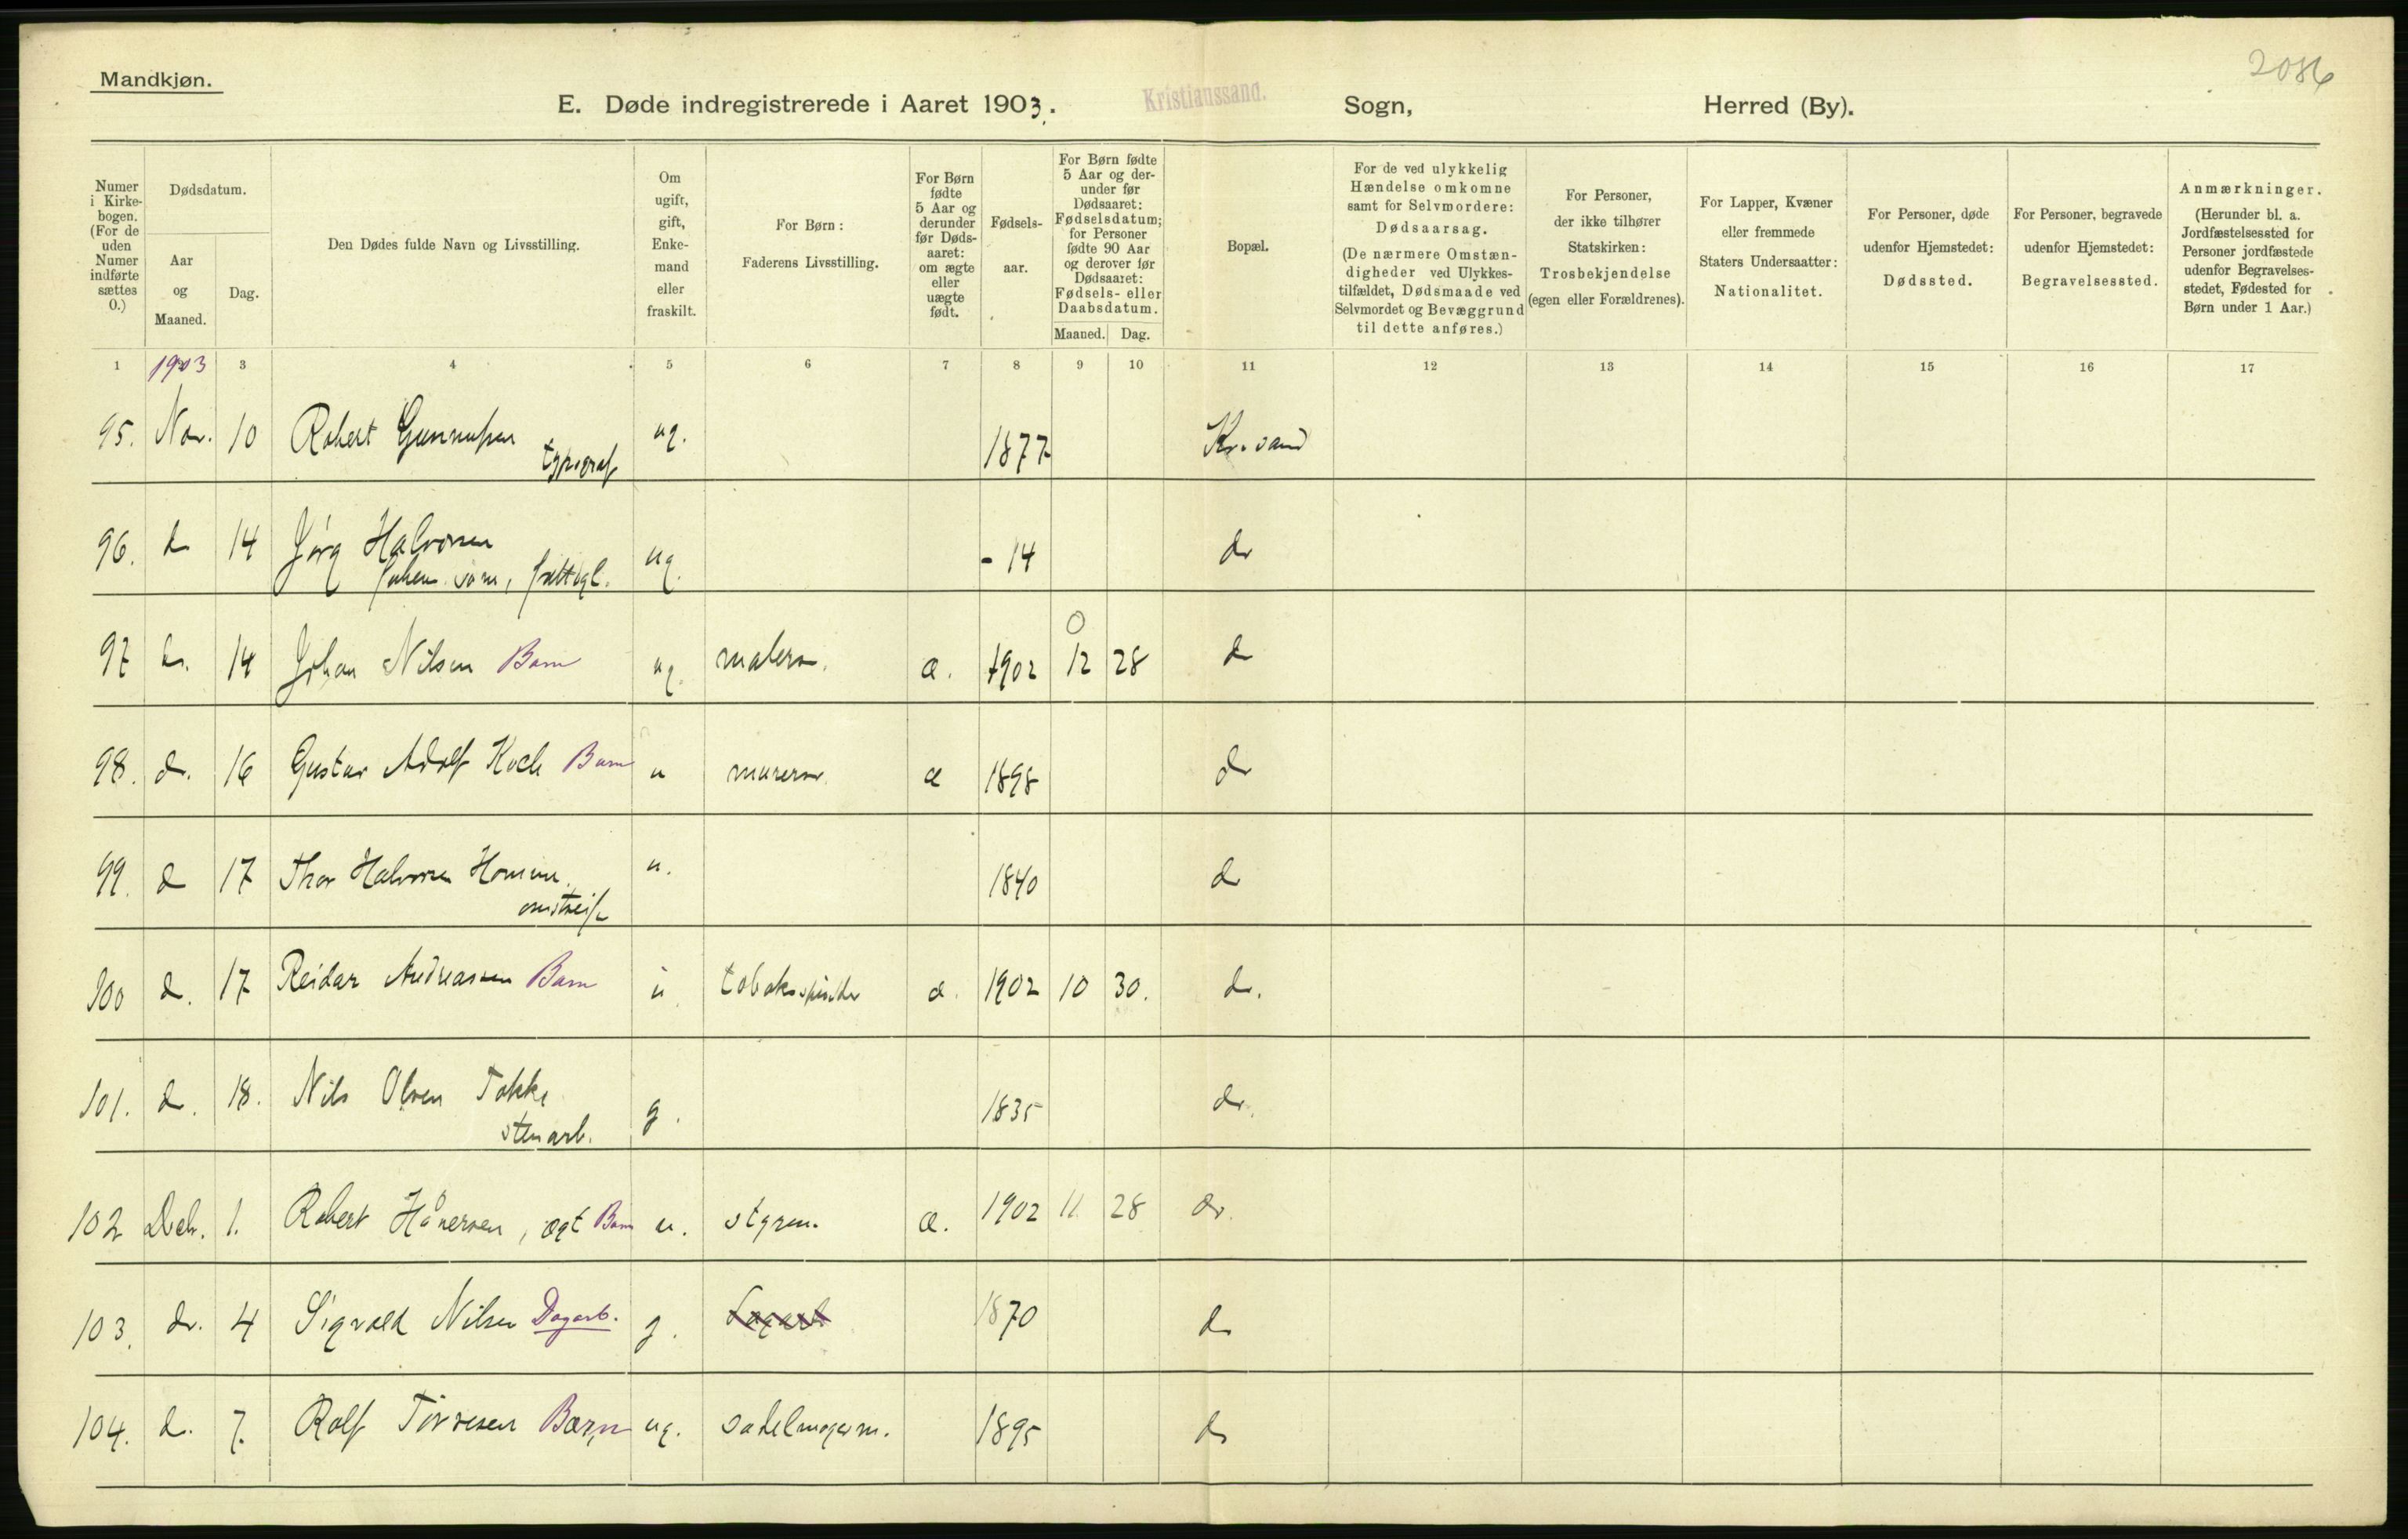 Mandkjøn.
2086
E. Døde indregistrerede i Aaret 1903. Kristianssand. Sogn, Herred (By).
Numer i Kirkebogen. (For de uden Numer indførte sættes 0.)
Dødsdatum.
Aar og Maaned.
Dag.
Den Dødes fulde Navn og Livsstilling.
Om ugift, gift, Enkemand eller fraskilt.
For Børn: Faderens Livsstilling.
For Børn fødte 5 Aar og derunder før Dødsaaret: om ægte eller uægte født.
Fødselsaar.
For Børn fødte 5 Aar og derunder før Dødsaaret: Fødselsdatum; for Personer fødte 90 Aar og derover før Dødsaaret: Fødsels- eller Daabsdatum.
Maaned. Dag.
Bopæl.
For de ved ulykkelig Hændelse omkomne samt for Selvmordere: Dødsaarsag. (De nærmere Omstændigheder ved Ulykkestilfældet, Dødsmaade ved Selvmordet og Bevæggrund til dette anføres.)
For Personer, der ikke tilhører Statskirken: Trosbekjendelse (egen eller Forældrenes).
For Lapper, Kvæner eller fremmede Staters Undersaatter: Nationalitet.
For Personer, døde udenfor Hjemstedet: Dødssted.
For Personer, begravede udenfor Hjemstedet: Begravelsessted.
Anmærkninger. (Herunder bl. a. Jordfæstelsessted for Personer jordfæstede udenfor Begravelsesstedet, Fødested for Børn under 1 Aar.)
1 1903 3 4 5 6 7 8 9 10 11 12 13 14 15 16 17
95. Nov. 10 Robert Gunnufsen ug. 1877 Kr.sand
typograf
96. do 14 Jörg Halvorsen ug. - 14 do
sam, fattigl.
0
97 do. 14 Johan Nilsen Barn ug. malersv. æ. 1902 12 28 do
98. do. 16 Gustav Adolf Koch Barn u murersv. æ 1898 do
99. do 17 Thor Halvorsen Homme u. 1840 do
omstreif
100 do. 17 Reidar Andreassen Barn u. tobakspinder æ. 1902 10 30. do.
101. do. 18. Nils Olsen Takke g. 1835 do.
stenarb.
102 Dcb. 1. Robert Hånersen, ægt Barn u. styrm. æ. 1902 11. 28 do.
103. do. 4 Sigvald Nilsen Dagarb. g. 1870 do
104. do. 7. Rolf Törresen Barn ug. sadelmagerm. 1895 do